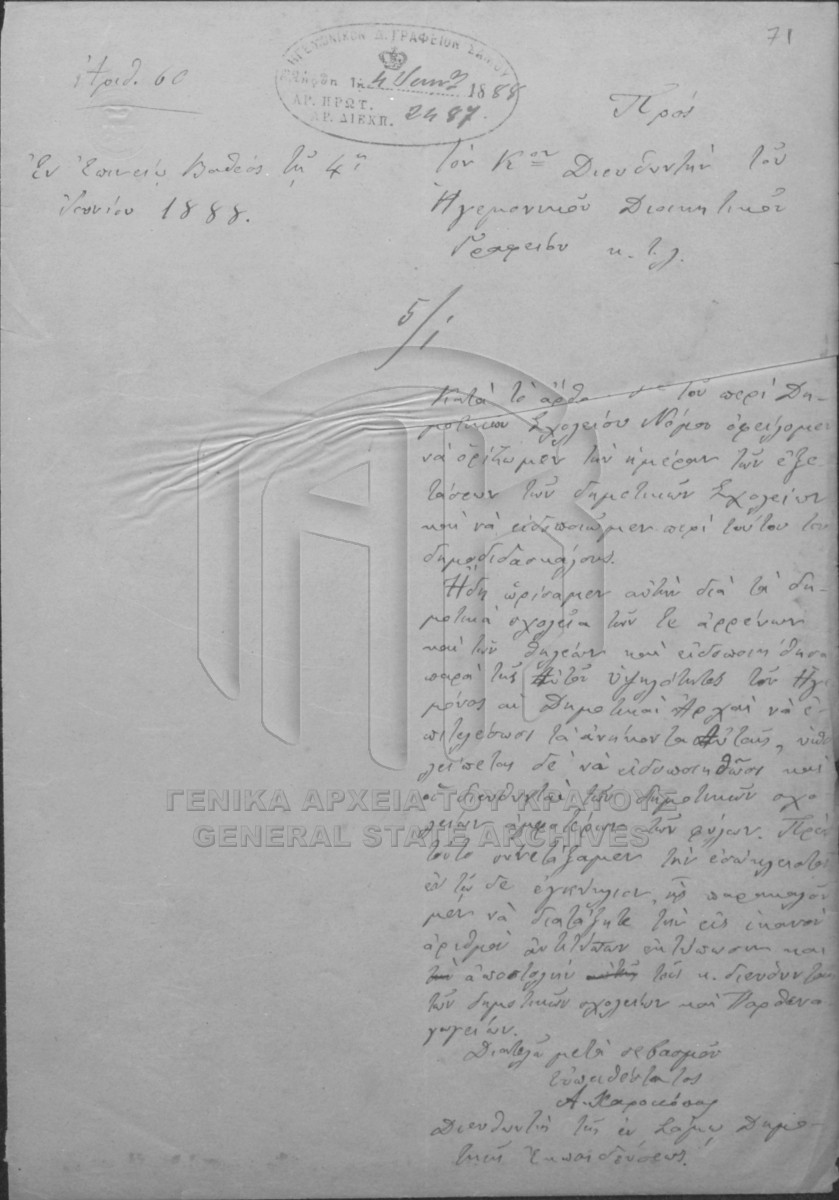 71
Ἀριθ. 60
ΗΓΕΜΟΝΙΚΟΝ Δ. ΓΡΑΦΕΙΟΝ ΣΑΜΟΥ
τῇ 4 Ἰουν. 1888
ΑΡ. ΠΡΩΤ.
ΑΡ. ΔΙΕΚΠ. 2487.
Πρὸς
Ἐν Ἐπινείῳ Βαθέος τῇ 4ῃ
Ἰουνίου 1888.
τὸν Κον Διευθυντὴν τοῦ
Ἡγεμονικοῦ Διοικητικοῦ
Γραφείου κ.τ.λ.
5/i
Κατὰ τὸ ἄρθρ. τοῦ περὶ Δη-
μοτικῶν Σχολείων Νόμου ὀφείλομεν
νὰ ὁρίζωμεν τὴν ἡμέραν τῶν ἐξε-
τάσεων τῶν δημοτικῶν Σχολείων
καὶ νὰ εἰδοποιῶμεν περὶ τούτου τοὺς
δημοδιδασκάλους.
Ἤδη ὡρίσαμεν αὐτὴν διὰ τὰ δη-
μοτικὰ σχολεῖα τῶν τε ἀρρένων
καὶ τῶν θηλέων καὶ εἰδοποιήθησαν
παρὰ τῆς Αὐτοῦ Ὑψηλότητος τοῦ Ἡγε
μόνος αἱ Δημοτικαὶ Ἀρχαὶ νὰ ἐ-
πιτελέσωσι τὰ ἀνήκοντα αὐταῖς, ὑπο
λείπεται δὲ νὰ εἰδοποιηθῶσι καὶ
οἱ διευθυνταὶ τῶν δημοτικῶν σχο
λείων ἀμφοτέρων τῶν φύλων. Πρὸς
τοῦτο συνετάξαμεν τὴν ἐσώκλειστον
ἐν τῷδε ἐγκύκλιον, ἧς παρακαλοῦ
μεν νὰ διατάξητε τὴν εἰς ἱκανὸν
ἀριθμὸν ἀντιτύπων ἐκτύπωσιν καὶ
τὴν ἀποστολὴν αὐτῆς τοῖς κ. διευθυνταῖς
τῶν δημοτικῶν σχολείων καὶ Παρθενα
γωγείων.
Διατελῶ μετὰ σεβασμοῦ
εὐπειθέστατος
Διευθυντὴς τῆς ἐν Σάμῳ Δημο-
τικῆς Ἐκπαιδεύσεως.
ΓΕΝΙΚΑ ΑΡΧΕΙΑ ΤΟΥ ΚΡΑΤΟΥΣ
GENERAL STATE ARCHIVES